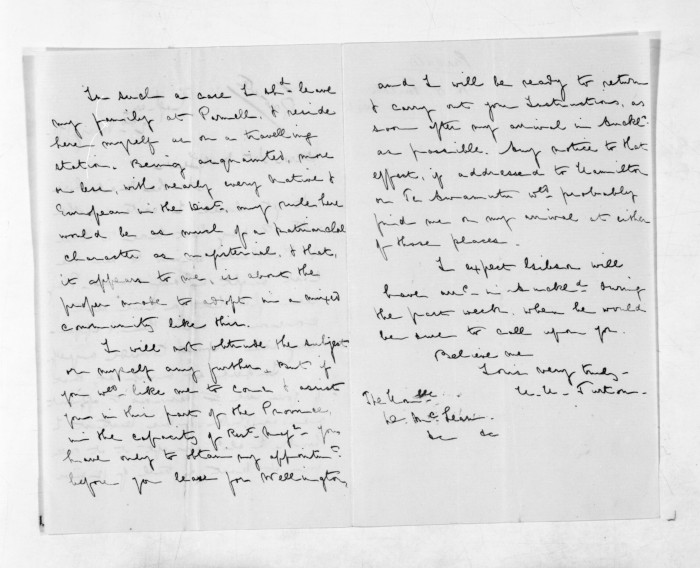 In such a case I shd. leave
my family at Parnell, & reside
here myself as on a travelling
station. Being acquainted, more
or less, with nearly every Native &
European in the Dist., my rule here
would be as much of a patriarchal
character as magisterial, & that,
it appears to me, is about the
proper mode to adopt in a mixed
community like this.
I will not obtrude the subject
on myself any further. But if
you wd. like me to come & assist
you in this part of the Province,
in the capacity of Rest. Magte. you
have only to obtain my appointmt.
before you leave for Wellington,
and I will be ready to return
& carry out your Instructions, as
soon after my arrival in Auckld.
as possible. Any notice to that
effect, if addressed to Hamilton
or Te Awamutu wd. probably
find me on my arrival at either
of those places.
I expect Gibson will
have arrd. in Auckld. during
the past week, when he would
be sure to call upon you.
Believe me
Yours very truly
Turton
The Honble.
D. McLean
&c &c